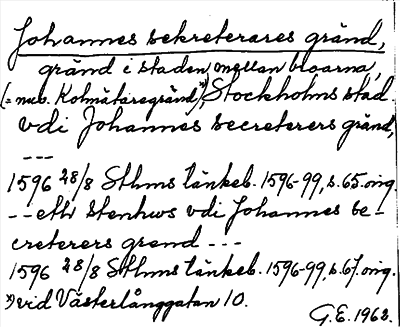 Johannes sekreterares gränd,
gränd i staden mellan broarna,
(= nuv. Kolmätaregränd)*), Stockholms stad.
vdi Johannes secreterers gränd,
---
1596 28/8 Sthms tänkeb. 1596-99, s. 65. orig.
-- ett stenhws vdi Johannes se-
creterers grend ---
1596 28/8 Sthms tänkeb. 1596-99, s. 67. orig.
*) vid Västerlånggatan 10.
G.E. 1962.